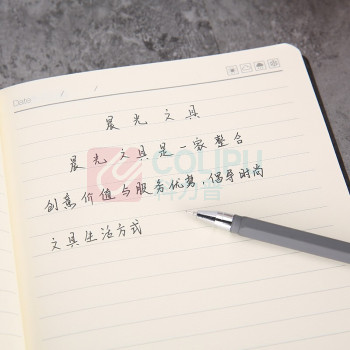 Date
晨光文具
晨光文具是一家整合
创意价值与服务优势,倡导时尚
文具生活方式
COLIPU
科力普